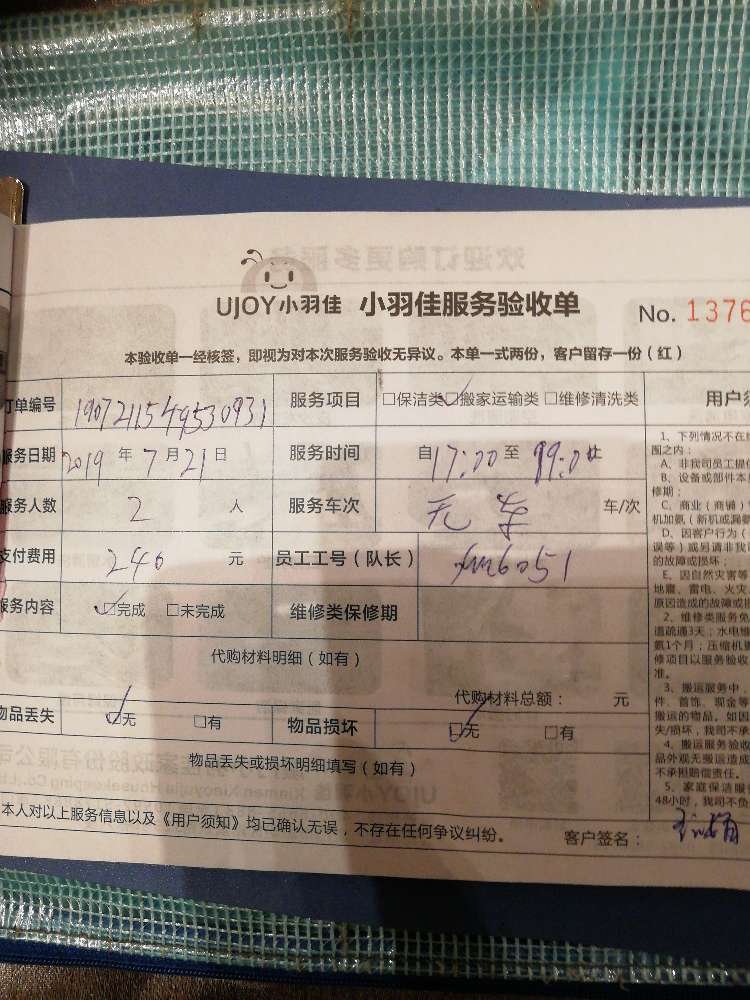 UJOY小羽佳 小羽佳服务验收单 No. 1376
本验收单一经核签，即视为对本次服务验收无异议。本单一式两份，客户留存一份（红）
订单编号 服务项目 □保洁类 ☑搬家运输类 □维修清洗类 用户须
服务日期 2019 年 7 月 21 日 服务时间 自 17:00 至
服务人数 2 人 服务车次 无车 车/次
支付费用 240 元 员工工号（队长） xm6051
服务内容 ☑完成 □未完成 维修类保修期
代购材料明细（如有）
代购材料总额： 元
物品丢失 ☑无 □有 物品损坏 ☑无 □有
物品丢失或损坏明细填写（如有）
本人对以上服务信息以及《用户须知》均已确认无误，不存在任何争议纠纷。 客户签名：
1、下列情况不在
围之内：
A、非我司员工提
B、设备或部件本
修期；
C、商业（商铺）
机加氨（新机或漏氨
D、因客户行为（
误等）或另请非我
的故障或损坏；
E、因自然灾害等
地震、雷电、火灾、
原因造成的故障或
2、维修类服务免
道疏通3天；水电维
氨1个月；压缩机更
修项目以服务验收
准。
3、搬运服务中，
件、首饰、现金等
搬运的物品。如因
失/损坏，我司不承
4、搬运服务验收
品外观无搬运造成
不承担赔偿责任。
5、家庭保洁服
48小时，我司不负